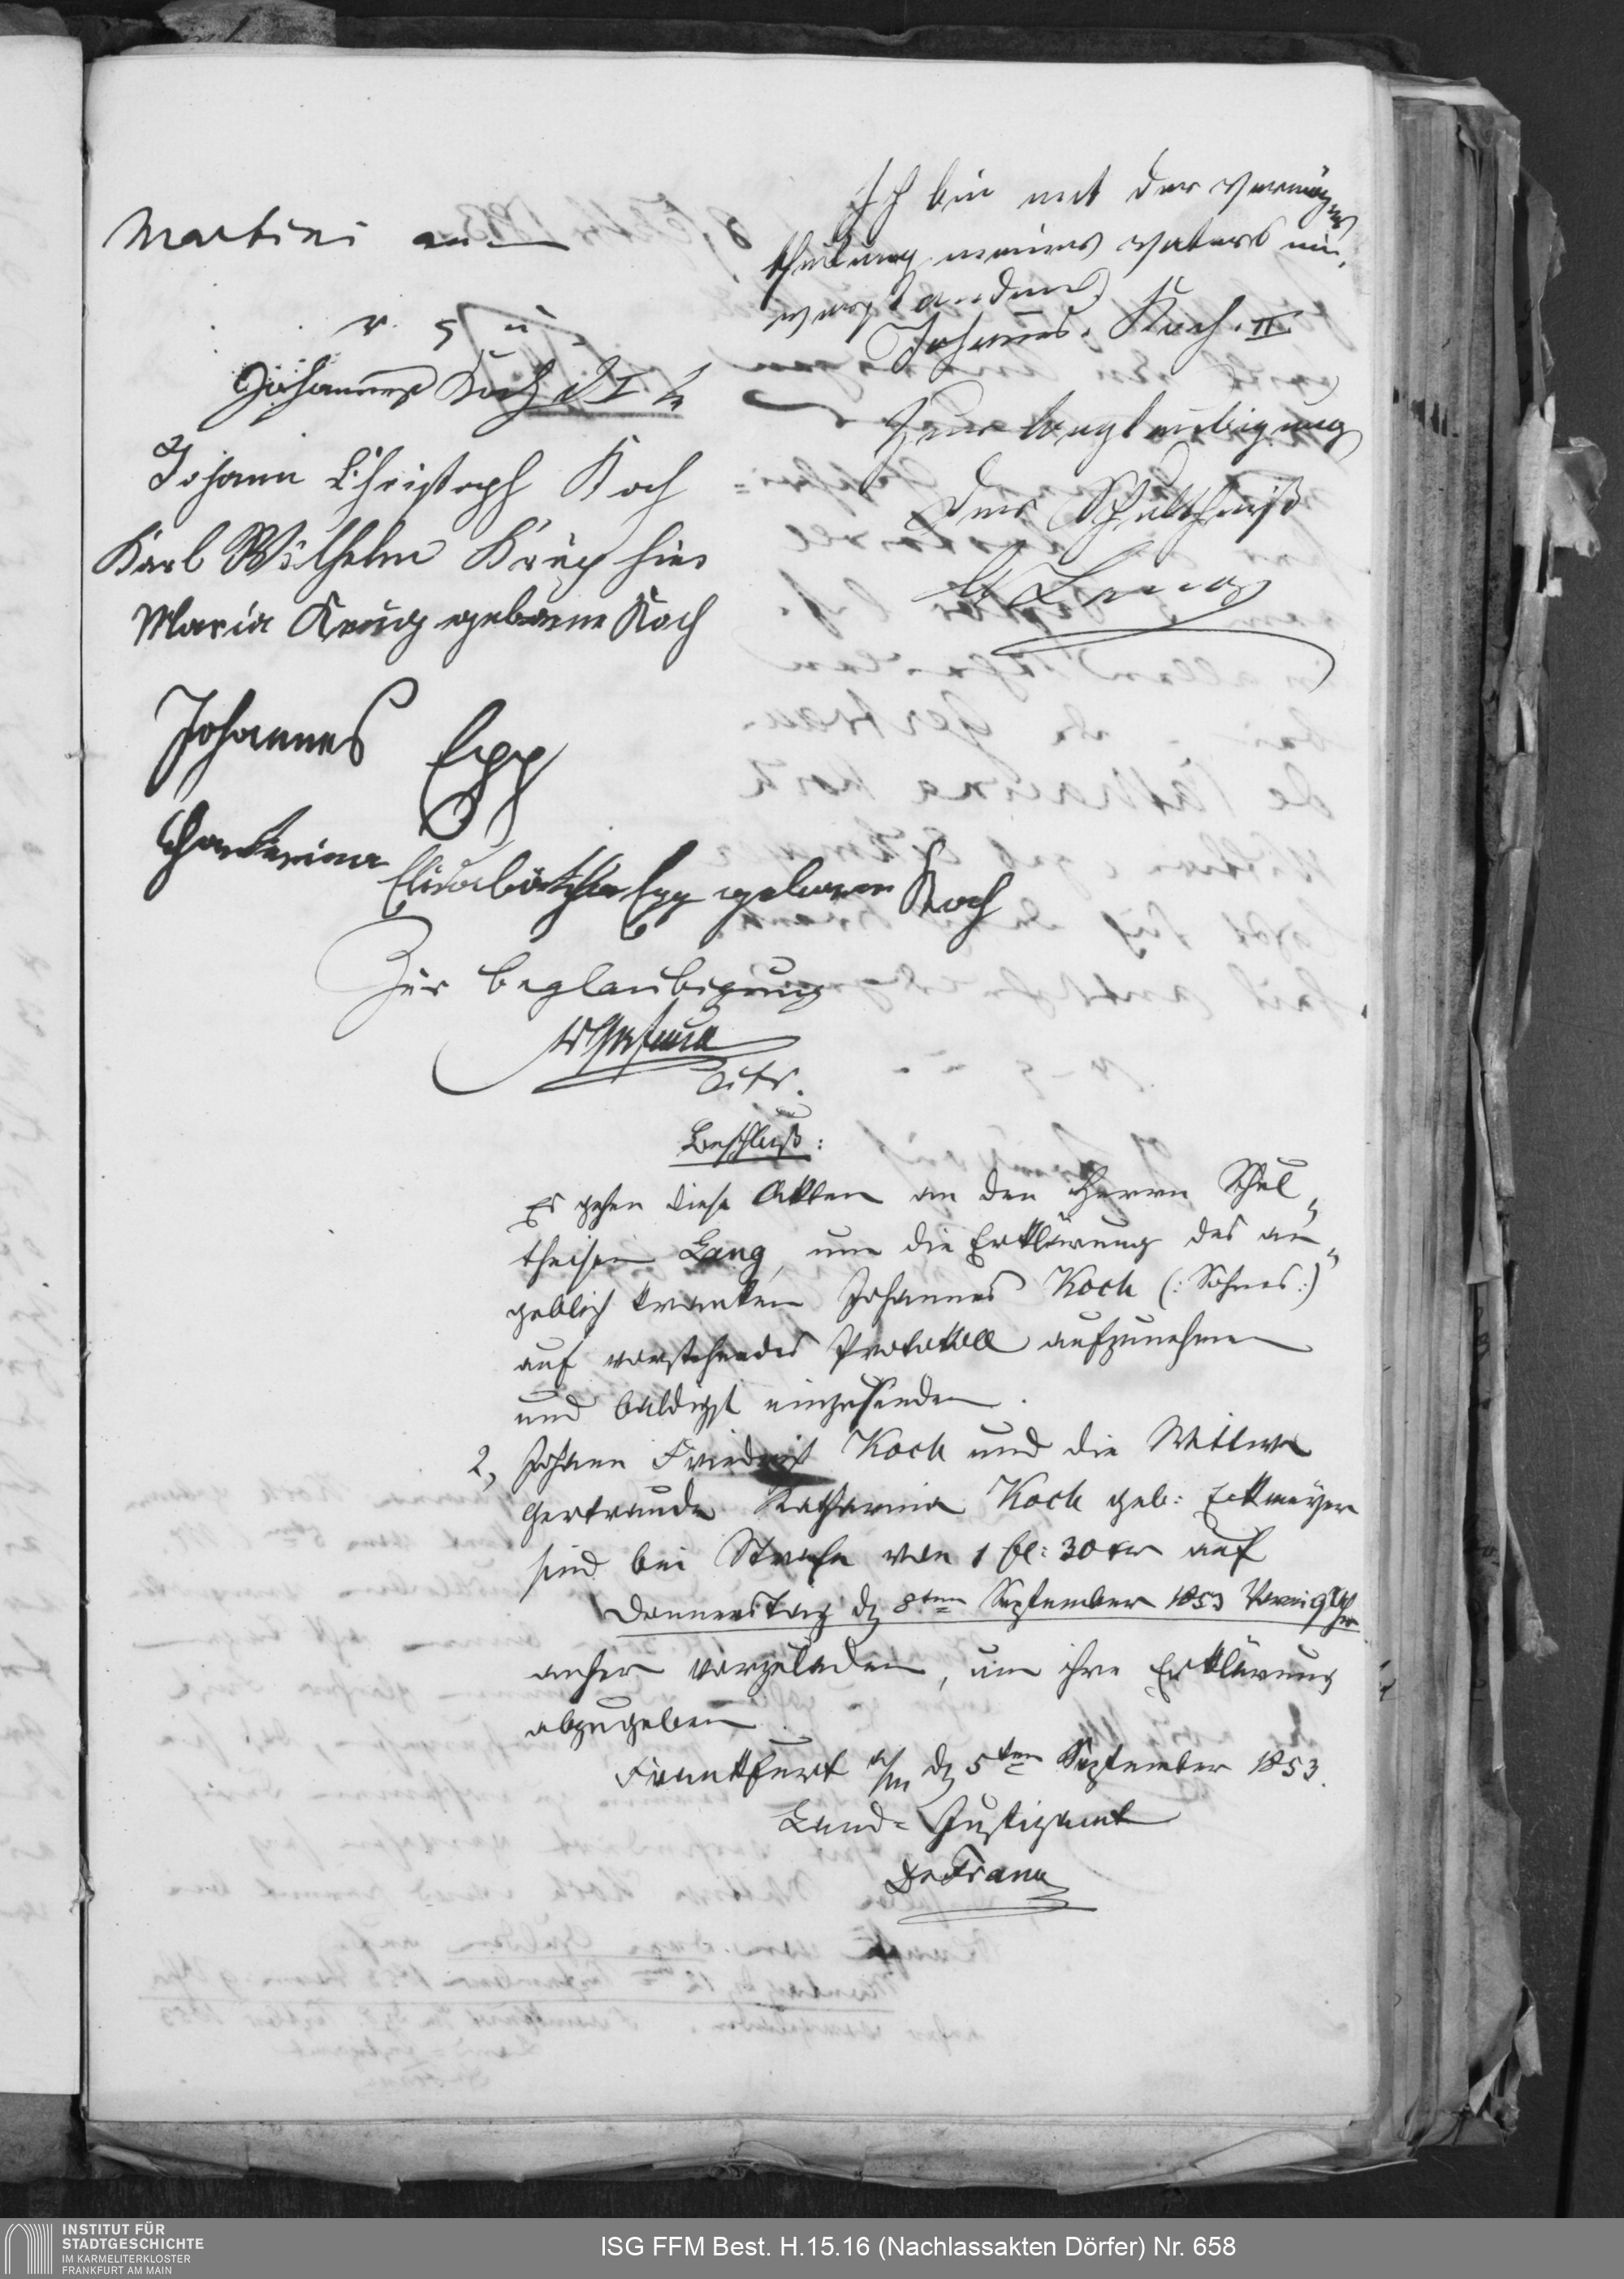 Martini an
v. g. u.
Johannes Koch II
Johann Christoph Koch
Karl Wilhelm Krug
Maria Krug geborne Koch
Johannes Epp
Elisabetha Epp geboren Koch
Zur Beglaubigung
Ich bin mit der Vermögens
theilung meines Vaters ein,
verstanden
Johannes Koch. II
Zur beglaubigung
Der Schultheiß
Lang
Beschluß:
Es gehen diese Akten an den Herrn Schul„
theisen Lang, um die Erklärung des an„
geblich kranken Johannes Koch (: Sohnes :)
auf vorstehendes Protokoll aufzunehmen
und baldigst einzusenden.
2, Johann Friedrich Koch und die Wittwe
Gertraude Katharina Koch geb:
sind bei Strafe von 1 fl: 30 xr auf
Donnerstag d 8ten September 1853 Vorm 9 Uhr
anher vorzuladen, um ihre Erklärung
abzugeben.
Frankfurt a/m d 5ten September 1853.
Land-Justizamt
INSTITUT FÜR
STADTGESCHICHTE
IM KARMELITERKLOSTER
FRANKFURT AM MAIN
ISG FFM Best. H.15.16 (Nachlassakten Dörfer) Nr. 658